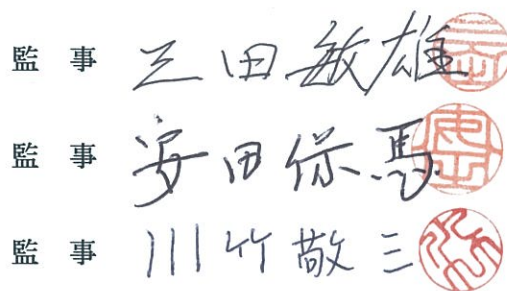 監事 三田敏雄
監事 安田保馬
監事 川竹敬三